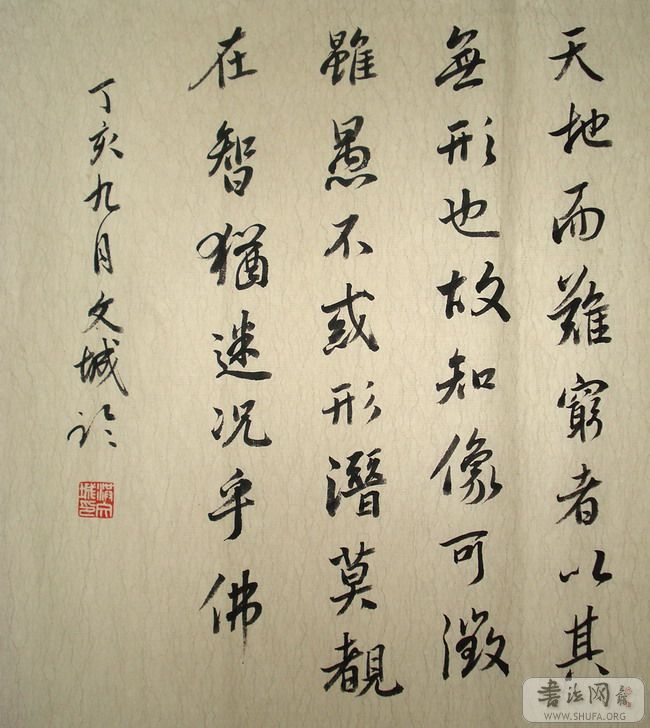 天地而難窮者以其
無形也故知像可徵
雖愚不惑形潛莫覩
在智猶迷況乎佛
丁亥九月文城
書法网
WWW.SHUFA.ORG